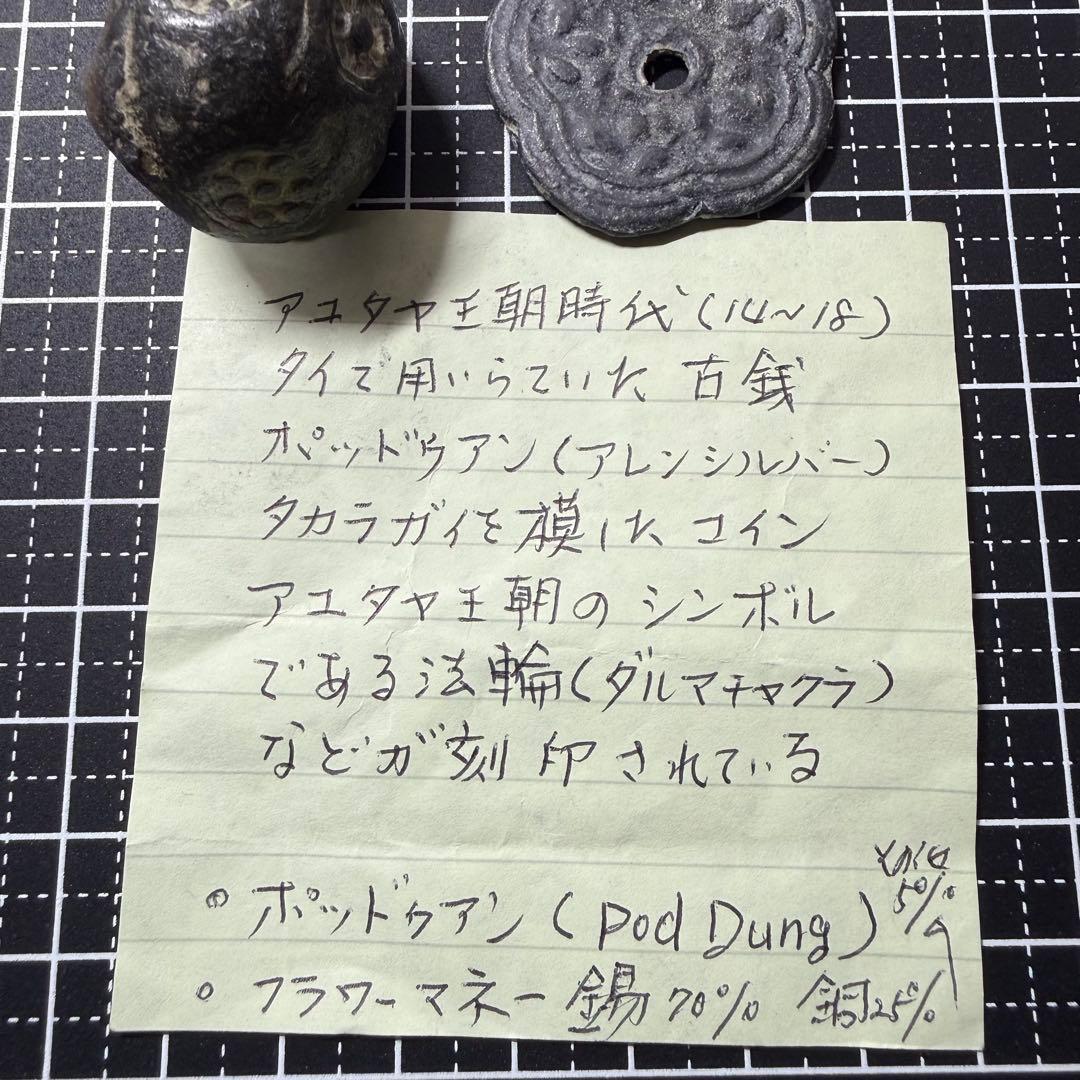 アユタヤ王朝時代(14～18)
タイで用いらていた 古銭
ポッドゥアン(アレンシルバー)
タカラガイを模した コイン
アユタヤ王朝の シンボル
である法輪(ダルマチャクラ)
などが刻印されている
その他
5%
◦ ポッドゥアン(Pod Dung)
◦ フラワーマネー 錫70% 銅25%